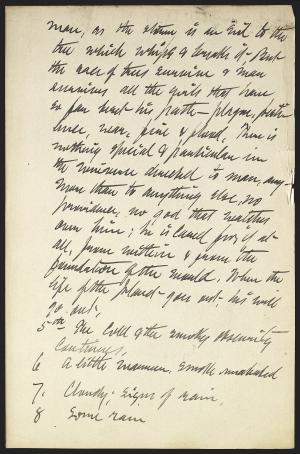 man, as the storm is an evil to the
tree which whips & breaks it. But
the race of trees survive & man
survives all the evils that have
so far beset his path – plague, pesti-
lence, war, fire & flood. There is
nothing special & particular in
the universe directed to man, any-
more than to anything else, no
providence, no god that watches
over him; he is cared for, if at
all, from within & from the
foundation of the world. When the
life of the planet goes out, his will
go out.
5th The cold & the smoky obscurity
continues,
6 A little warmer. Smoke unabated
7. Cloudy; signs of rain,
8 Some rain